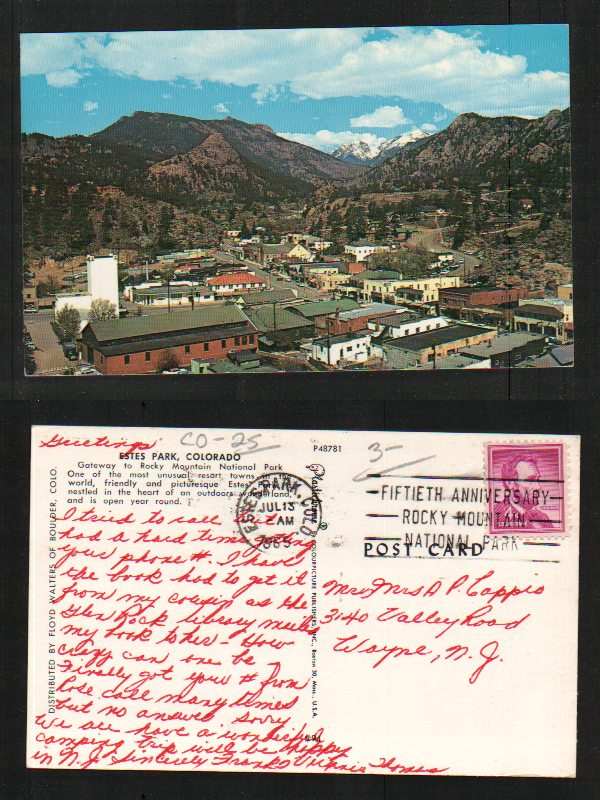 Greetings
CO-25
3-
P48781
ESTES PARK, COLORADO
Gateway to Rocky Mountain National Park
One of the most unusual resort towns in the
world, friendly and picturesque Estes
nestled in the heart of an outdoors wonderland,
and is open year round.
DISTRIBUTED BY FLOYD WALTERS OF BOULDER, COLO.
Plastichrome
BY COLOURPICTURE PUBLISHERS, INC., Boston 30, Mass., U.S.A.
ESTES PARK, COLO.
JUL 13
AM
1965
FIFTIETH ANNIVERSARY
ROCKY MOUNTAIN
NATIONAL PARK
POST CARD
I tried to call
had a hard time
your phone #. I have
the book had to get it
from my cousin as the
Glen Rock library
my book
How
crazy can one be
Finally got your # from
Rose call many times
but no answer. Sorry
We all have a wonderful
camping trip will be happy
in N.J. Sincerely Frank &
Thomas
Mr & Mrs A P. Cappio
3140 Valley Road
Wayne, N.J.